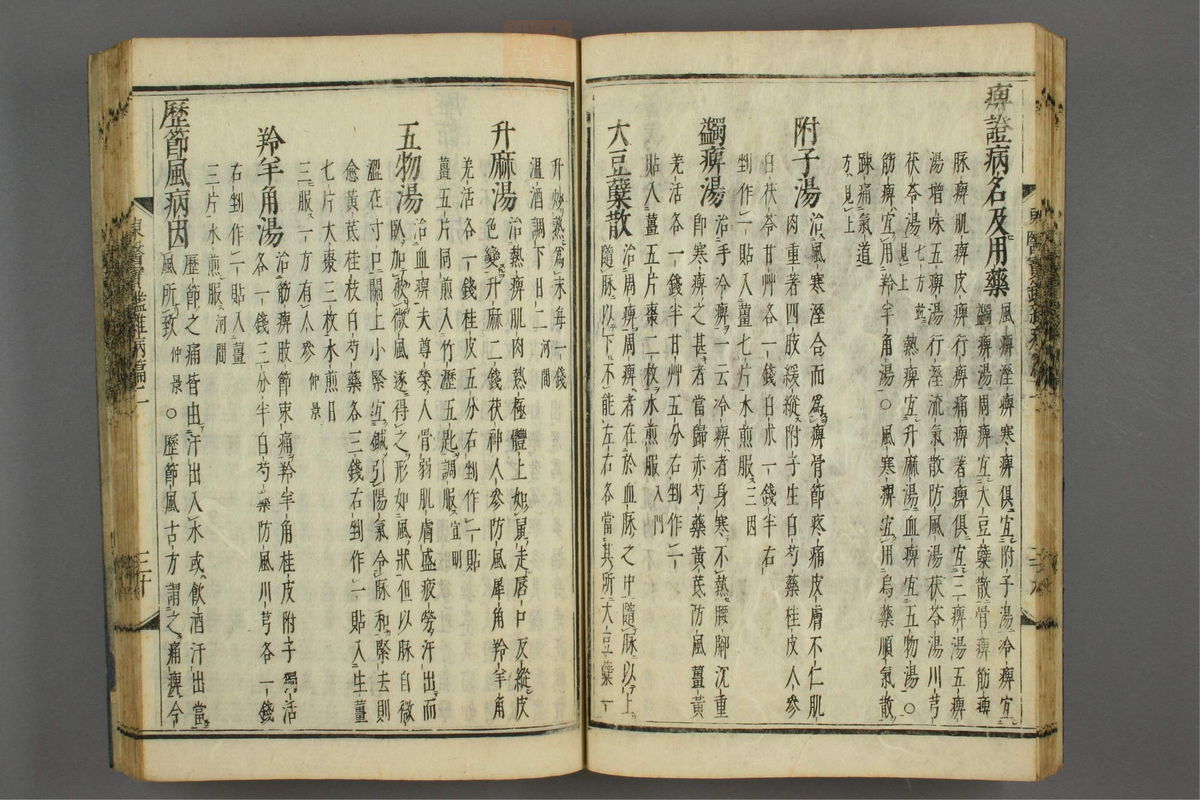 痺證病名及用藥 風痺溼痺寒痺俱宜附子湯冷痺宜
蠲痺湯周痺宜大豆蘗散骨痺筋痺
脉痺肌痺皮痺行痺痛痺著痺俱宜三痺湯五痺
湯增味五痺湯行溼流氣散防風湯茯苓湯川芎
茯苓湯七方並見上熱痺宜升麻湯血痺宜五物湯○
筋痺宜用羚羊角湯○風寒痺宜用烏藥順氣散
踈痛氣道
方見上
附子湯 治風寒溼合而爲痺骨節疼痛皮膚不仁肌
肉重著四肢緩縱附子生白芍藥桂皮人參
白茯苓甘艸各一錢白朮一錢半右
剉作一貼入薑七片水煎服三因
蠲痺湯 治手冷痺一云冷痺者身寒不熱腰脚沉重
卽寒痺之甚者當歸赤芍藥黃芪防風薑黃
羌活各一錢半甘艸五分右剉作一
貼入薑五片棗二枚水煎服入門
大豆蘗散 治周痺周痺者在於血脉之中隨脉以上
隨脉以下不能左右各當其所大豆蘗一
升炒熟爲末每一錢
溫酒調下日二河間
升麻湯 治熱痺肌肉熱極體上如鼠走唇口反縱皮
色變升麻二錢茯神人參防風犀角羚羊角
羌活各一錢桂皮五分右剉作一貼
薑五片同煎入竹瀝五匙調服宣明
五物湯 治血痺夫尊榮人骨弱肌膚盛疲勞汗出而
臥加被微風遂得之形如風狀但以脉自微
澀在寸口關上小緊宜鍼引陽氣令脉和緊去則
愈黃芪桂枝白芍藥各三錢右剉作一貼入生薑
七片大棗三枚水煎日
三服一方有人參仲景
羚羊角湯 治筋痺肢節束痛羚羊角桂皮附子獨活
各一錢三分半白芍藥防風川芎各一錢
右剉作一貼入薑
三片水煎服河間
歷節風病因 歷節之痛皆由汗出入水或飮酒汗出當
風所致仲景○歷節風古方謂之痛痺今
東醫寶鑑雜病篇二 三十